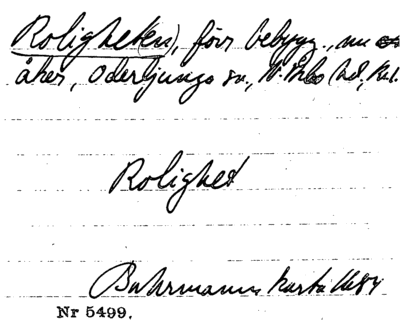 Roligheten), förr bebygg., nu
åker, Oderljunga sn, N. Åsbo hd, Kr.l.
Rolighet
Buhrmanns karta 1684
Nr 5499.